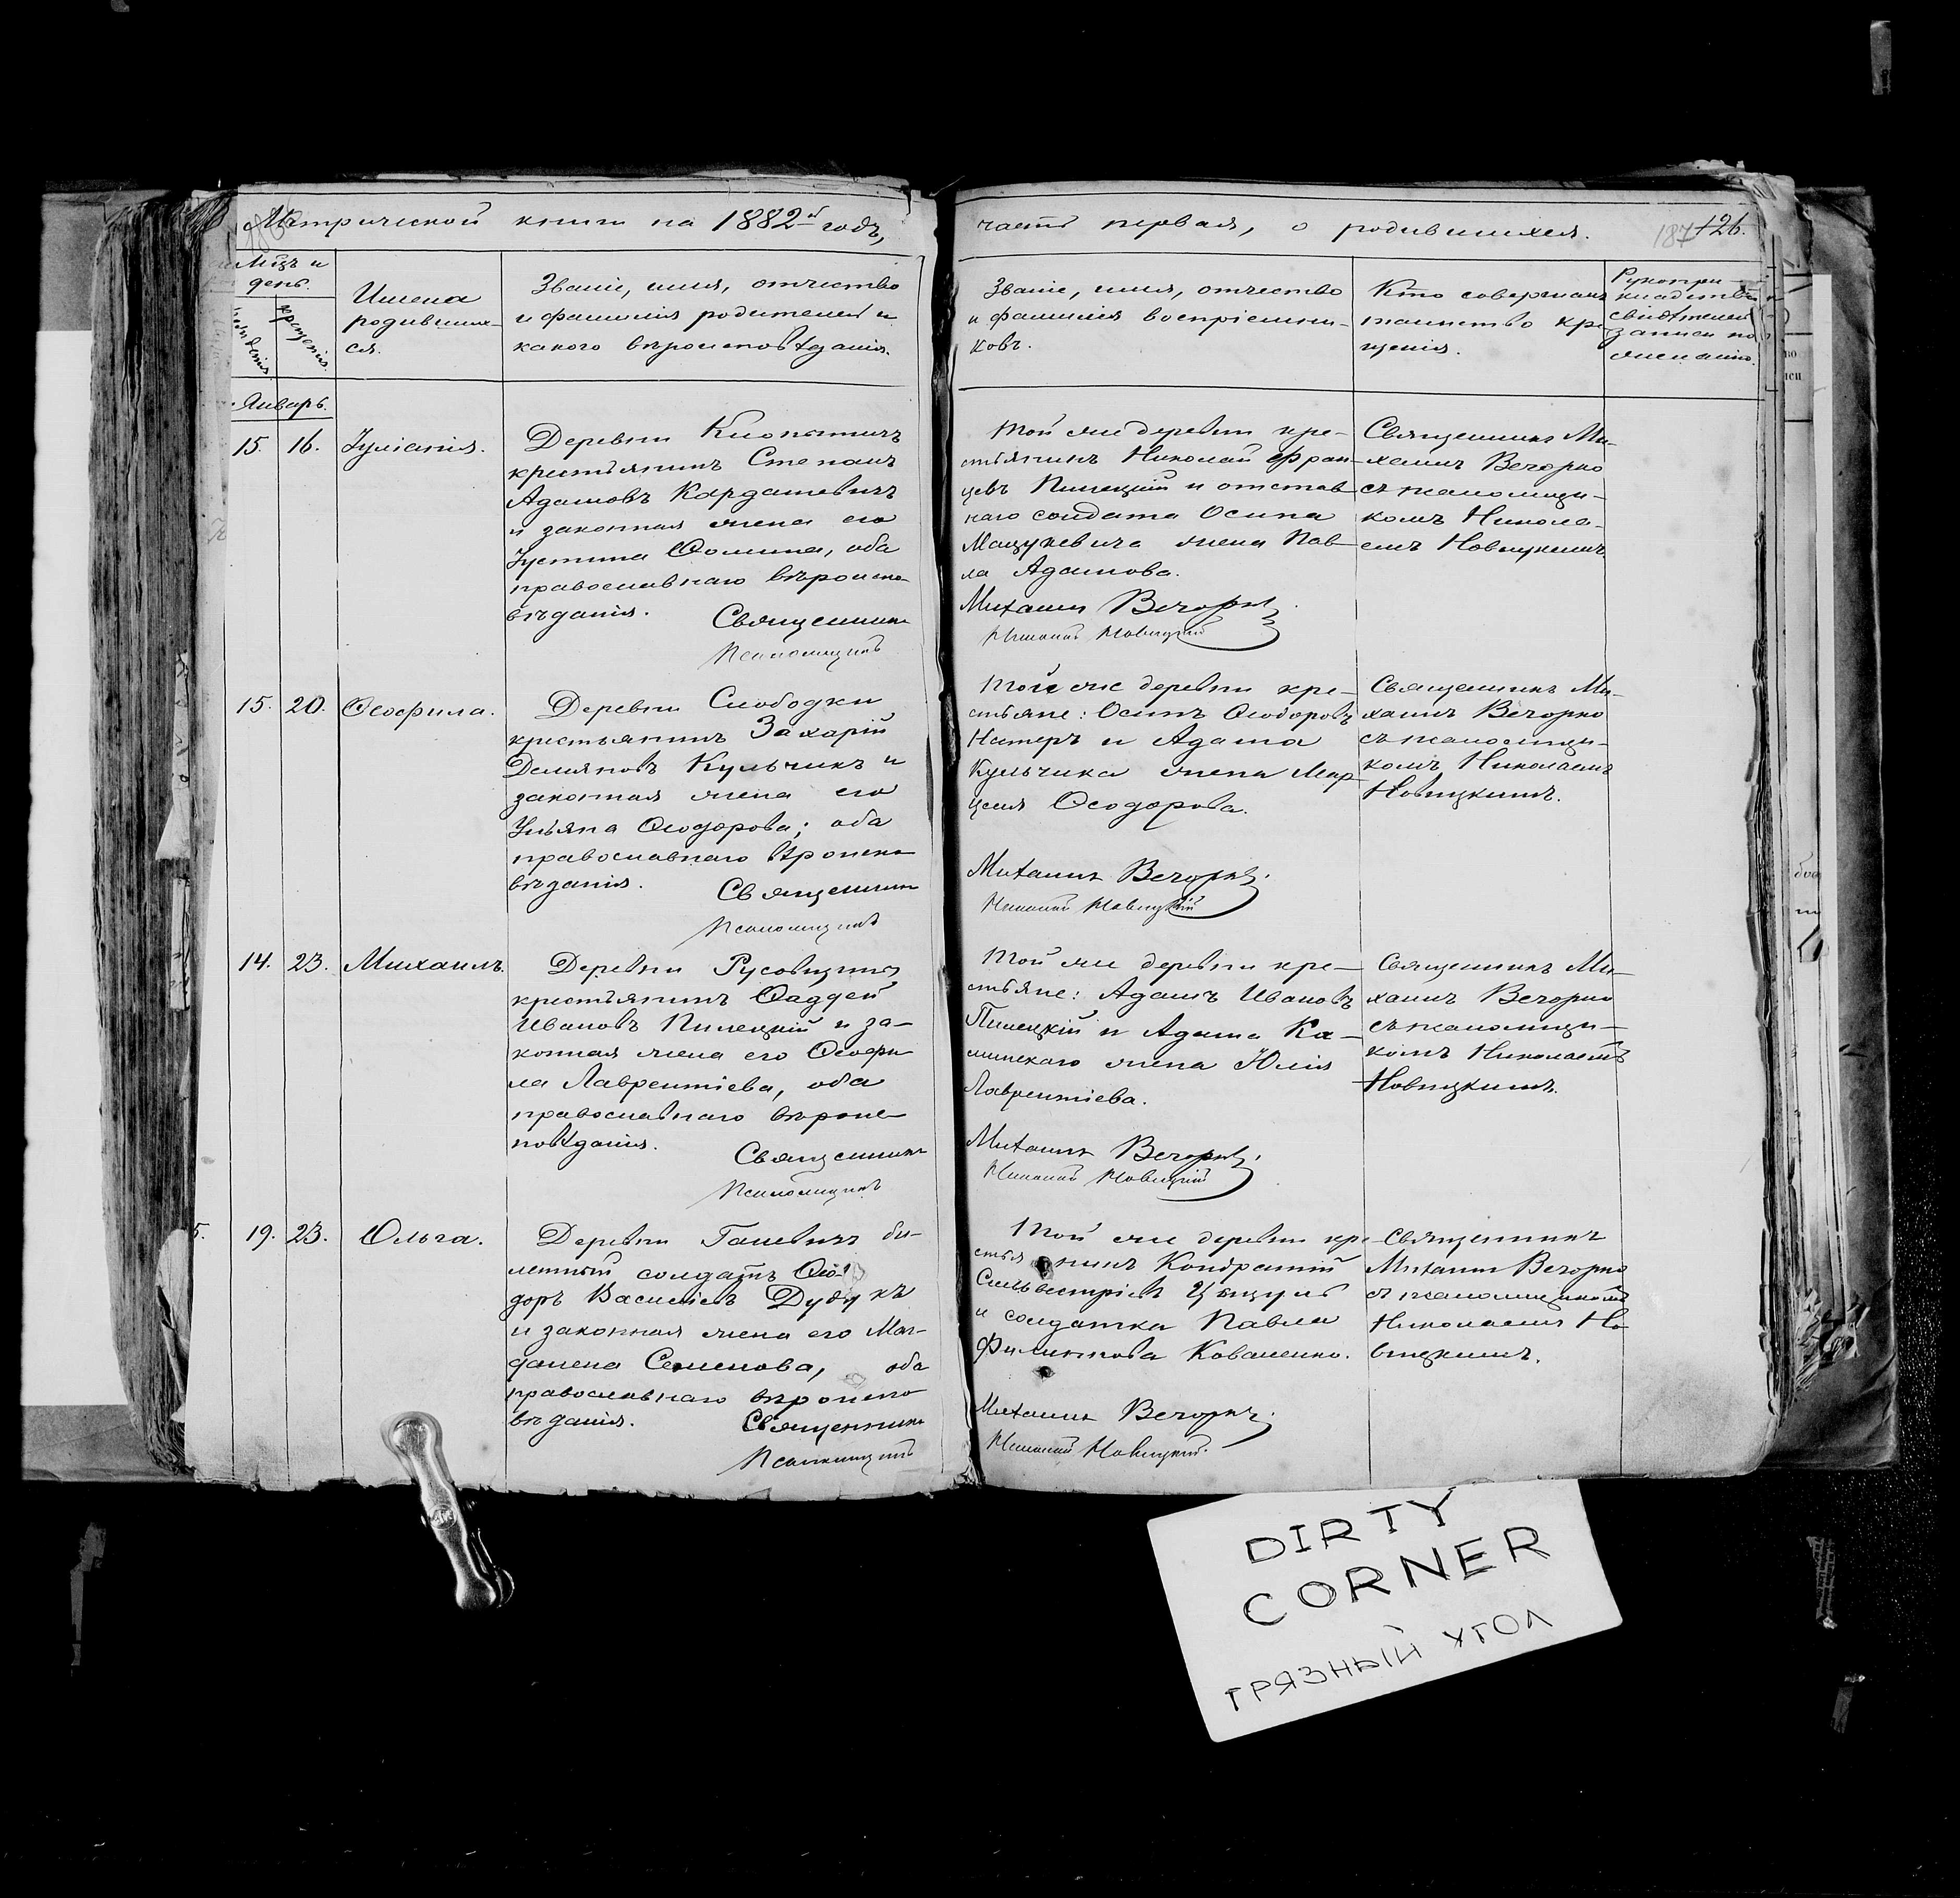 Метрической книги на 1882й годъ,
часть первая, о родившихся.
187 126.
Мцъ и
день.
рожденія.
крещенія.
Имена
родивших-
ся.
Званіе, имя, отчество
и фамилія родителей и
какого вѣроисповѣданія.
Званіе, имя, отчество
и фамилія воспріемни-
ковъ.
Кто совершалъ
таинство кре
щенія.
Рукопри-
кладство
свидѣтелей
записи по
желанію.
Январь.
15. 16. Іуліанія.
Деревни
крестьянинъ Степанъ
Адамовъ Кардашевичъ
и законная жена его
Іустина Ѳомина, оба
православнаго вѣроиспо-
вѣданія. Священникъ
Псаломщикъ
Той же деревни кре-
стьянинъ Николай Фран-
цевъ Пилецкій и отстав
наго солдата Осипа
Мацукевича жена Пав-
ла Адамова.
Михаилъ Вечорко
Николай Новицкій
Священникъ Ми-
хаилъ Вечорко
съ псаломщи-
комъ Никола-
емъ Новицкимъ
15. 20. Ѳеофила.
Деревни Слободки
крестьянинъ Захарій
Демяновъ Кульчикъ и
законная жена его
Ульяна Ѳеодорова; оба
православнаго вѣроиспо-
вѣданія. Священникъ
Псаломщикъ
Той же деревни кре-
стьяне: Осипъ Ѳеодоровъ
Нестеръ и Адама
Кульчика жена Мар
целя Ѳеодорова.
Михаилъ Вечорко
Николай Новицкій
Священникъ Ми-
хаилъ Вечорко
съ псаломщи-
комъ Николаемъ
Новицкимъ.
14. 23. Михаилъ.
Деревни
крестьянинъ Ѳаддей
Ивановъ Пилецкій и за-
конная жена его Ѳеофи
ла Лаврентіева, оба
православнаго вѣроис-
повѣданія. Священникъ
Псаломщикъ
Той же деревни кре-
стьяне: Адамъ Ивановъ
Пилецкій и Адама Ка-
минскаго жена Юлія
Лаврентіева.
Михаилъ Вечорко
Николай Новицкій
Священникъ Ми-
хаилъ Вечорко
съ псаломщи-
комъ Николаемъ
Новицкимъ.
5. 19. 23. Ольга.
Деревни Ганевичъ би-
летный солдатъ Ѳео-
доръ Васильевъ
и законная жена его Маг-
далена Семенова, оба
православнаго вѣроиспо
вѣданія. Священникъ
Псаломщикъ
Той же деревни кре
стьянинъ Кондратій
Сильвестровъ
и солдатка Павла
Филиппова Коваленко.
Михаилъ Вечорко
Николай Новицкій.
Священникъ
Михаилъ Вечорко
съ псаломщикомъ
Николаемъ Но
вицкимъ.
DIRTY
CORNER
ГРЯЗНЫЙ УГОЛ